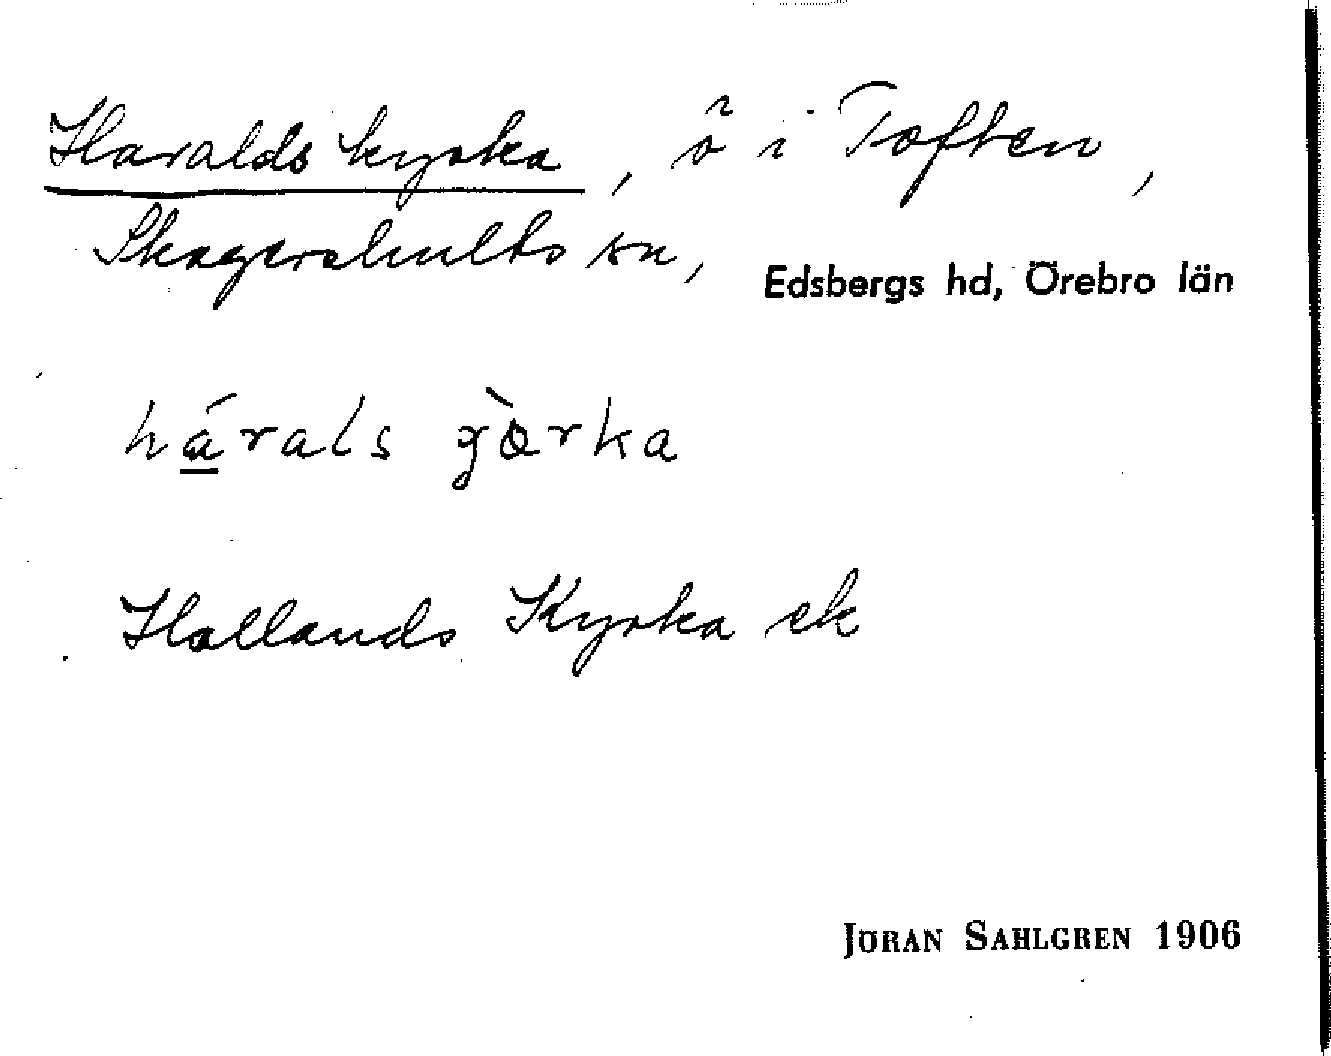 Haralds kyrka, ö i Toften,
Skagershults sn, Edsbergs hd, Örebro län
hárals gòrka
Hallands Kyrka ek
JÖRAN SAHLGREN 1906